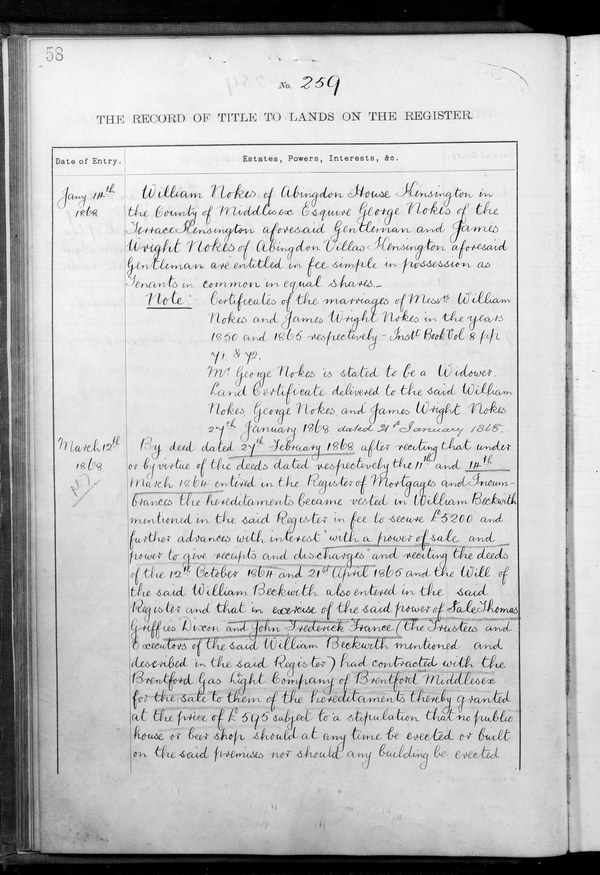 58
No. 259
THE RECORD OF TITLE TO LANDS ON THE REGISTER.
Date of Entry.
Estates, Powers, Interests, &c.
Jany 14th
1868
William Nokes of Abingdon House Kensington in
the County of Middlesex Esquire George Nokes of the
Terrace Kensington aforesaid Gentleman and James
Wright Nokes of Abingdon Villas Kensington aforesaid
Gentleman are entitled in fee simple in possession as
Tenants in common in equal shares._
Note Certificates of the marriages of Messrs William
Nokes and James Wright Nokes in the years
1850 and 1865 respectively - Instt Book Vol 8 pp
71 & 72.
Mr George Nokes is stated to be a Widower.
Land Certificate delivered to the said William
Nokes, George Nokes and James Wright Nokes
27th January 1868 dated 21st January 1868.
March 12th
1868
By deed dated 27th February 1868 after reciting that under
or by virtue of the deeds dated respectively the 11th and 14th
March 1864 entered in the Register of Mortgages and Incum-
brances the hereditaments became vested in William Beckwith
mentioned in the said Register in fee to secure £5200 and
further advances with interest "with a power of sale and
power to give receipts and discharges" and reciting the deeds
of the 12th October 1864 and 21st April 1865 and the Will of
the said William Beckwith also entered in the said
Register and that in exercise of the said power of Sale Thomas
Griffies Dixon and John Frederick France (the Trustees and
Executors of the said William Beckwith mentioned and
described in the said Register) had contracted with the
Brentford Gas Light Company of Brentford Middlesex
for the sale to them of the hereditaments thereby granted
at the price of £595 subject to a stipulation that no public
house or beer shop should at any time be erected or built
on the said premises nor should any building be erected